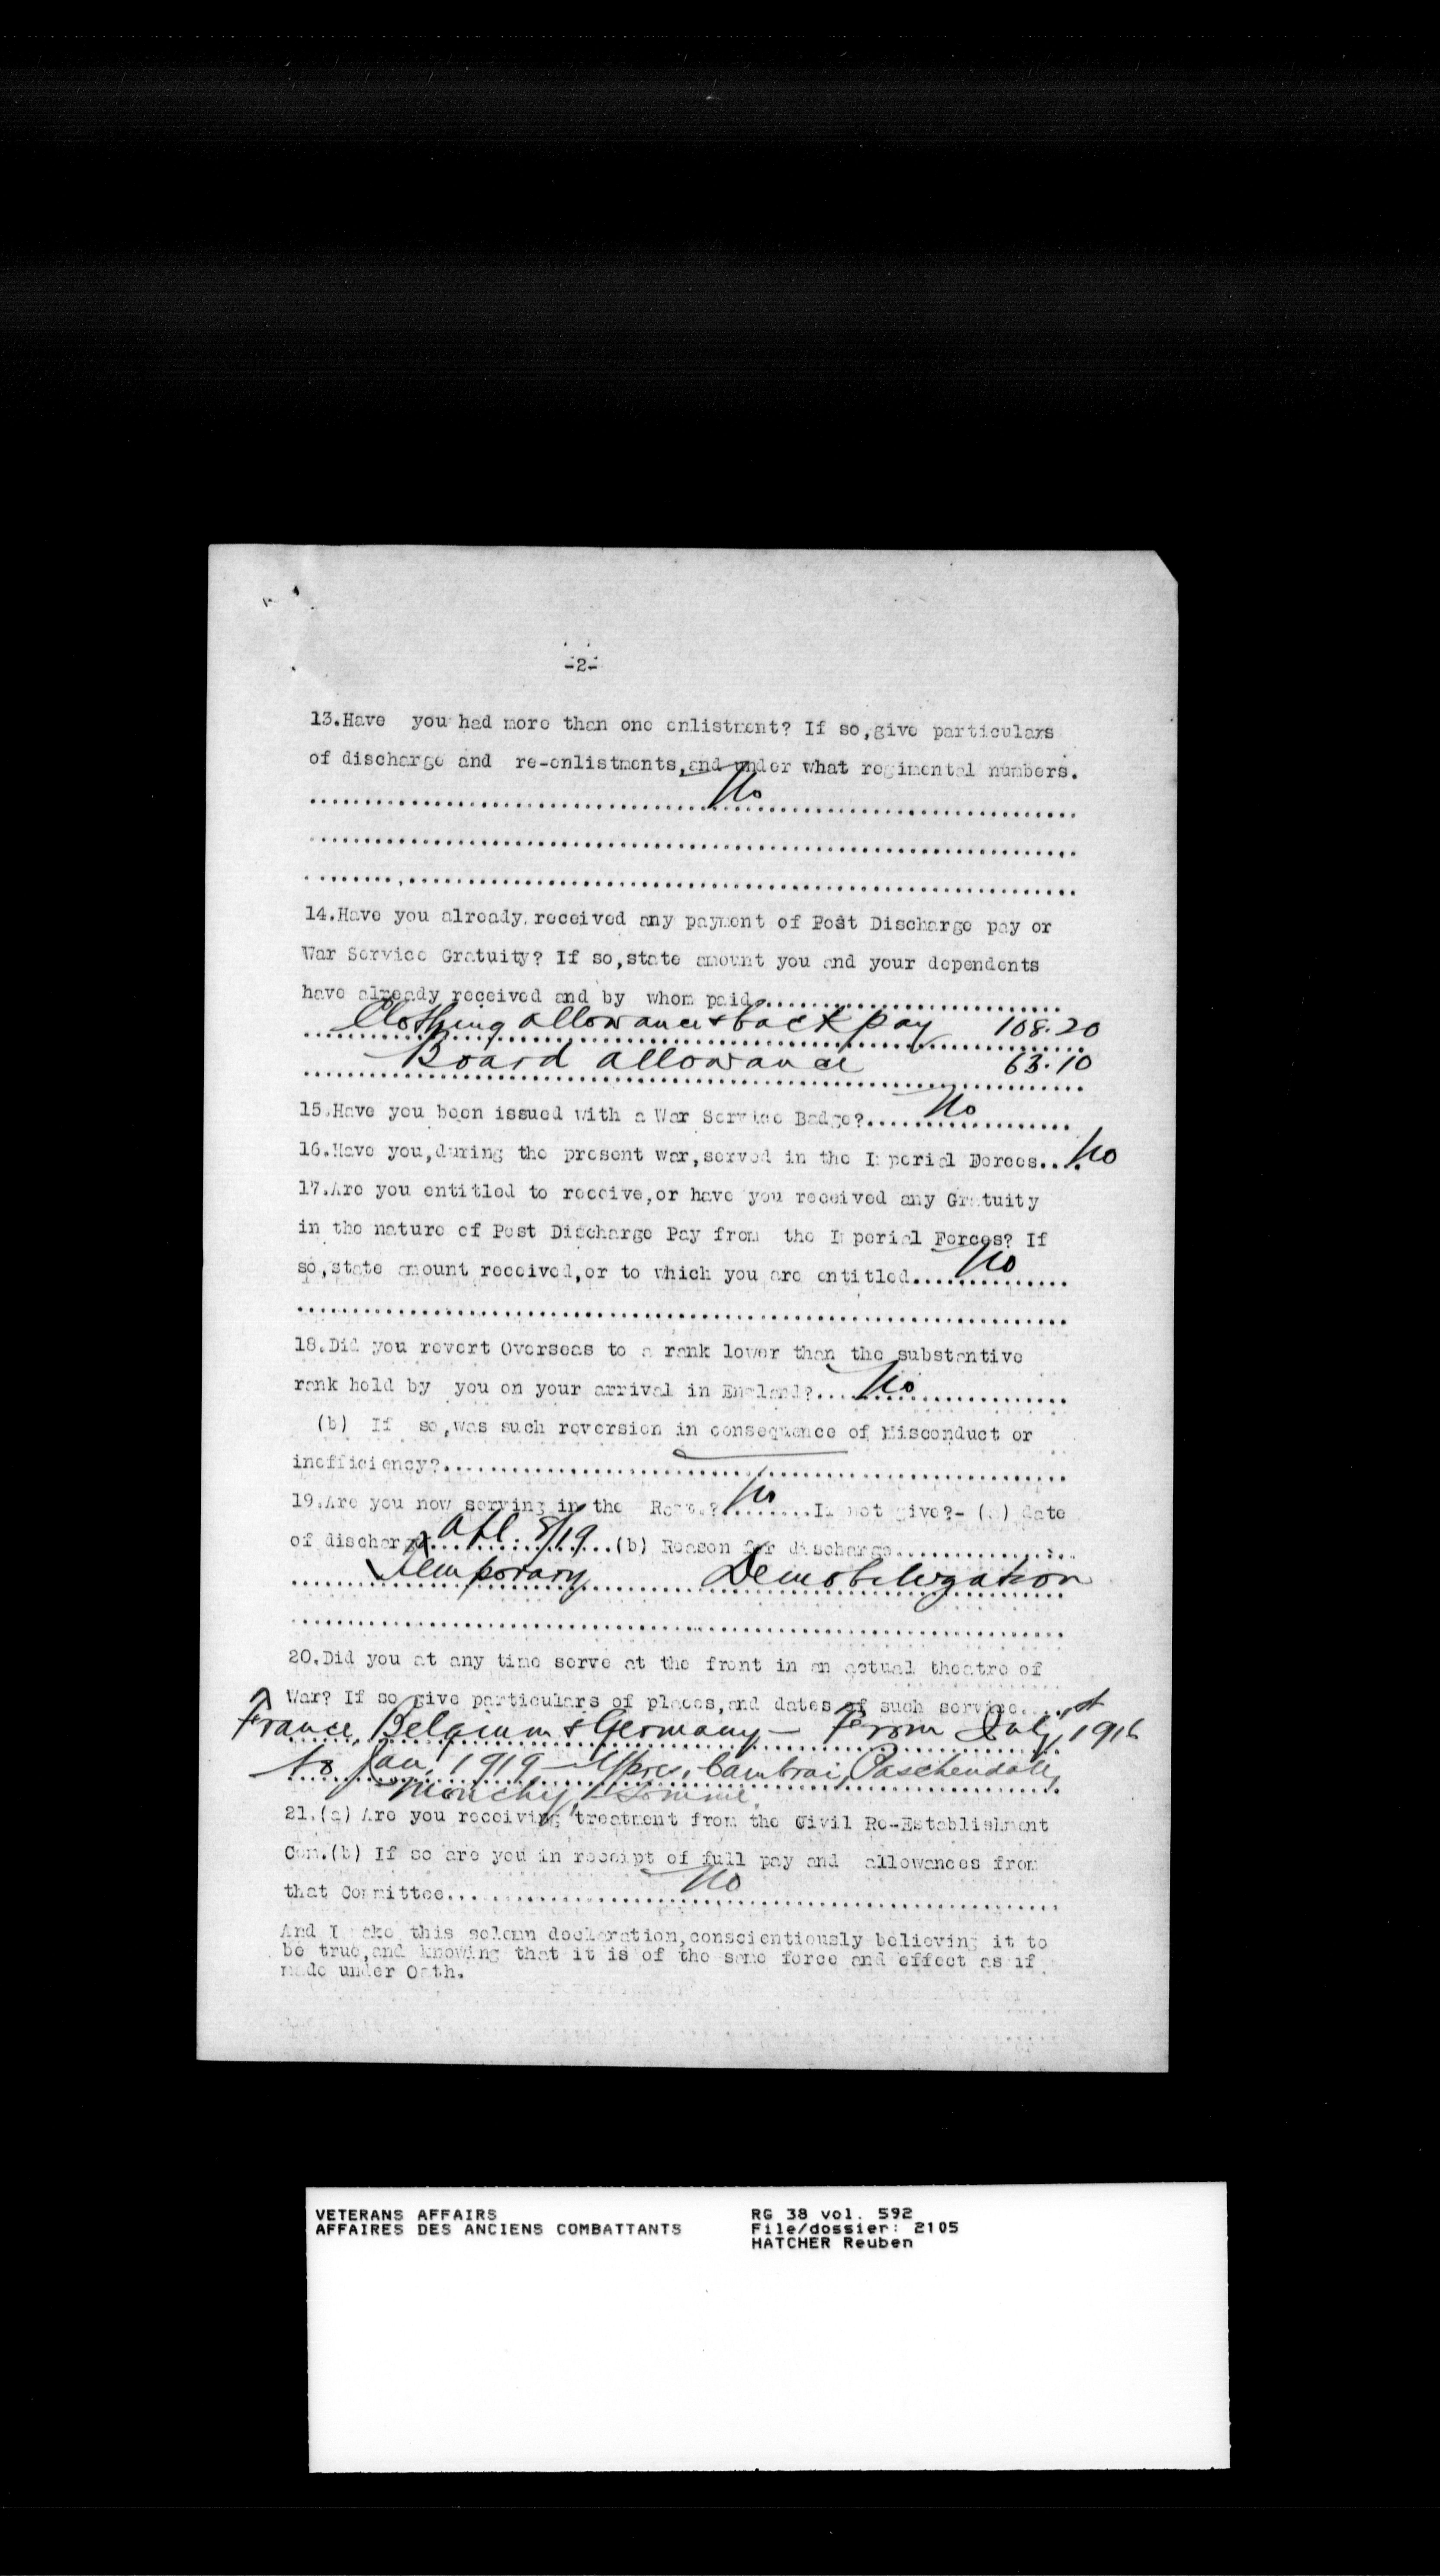 -2-
13.Have you had more than one enlistment? If so,give particulars
of discharge and re-enlistments,and under what regimental numbers.
No
14.Have you already received any payment of Post Discharge pay or
War Service Gratuity? If so,state amount you and your dependents
have already received and by whom paid..........................
Clothing allowance & back pay 108.20
Board allowance 63.10
15.Have you been issued with a War Service Badge?.... No
16.Have you,during the present war,served in the Imperial Forces.. No
17.Are you entitled to receive,or have you received any Gratuity
in the nature of Post Discharge Pay from the Imperial Forces? If
so,state amount received,or to which you are entitled.... No
18.Did you revert Overseas to a rank lower than the substantive
rank held by you on your arrival in England?.... No
(b) If so,was such reversion in consequence of Misconduct or
inefficiency?..........................
19.Are you now serving in the Regt.? No ........If not give?- (a) date
of discharge. Apl. 8/19 ...(b) Reason for discharge................
Temporary Demobilization
20.Did you at any time serve at the front in an actual theatre of
War? If so give particulars of places,and dates of such service....
France, Belgium & Germany - From July 1st 1916
to Jan. 1919 - Ypres, Cambrai, Paschendale,
Monchy, Somme.
21.(a) Are you receiving treatment from the Civil Re-Establishment
Com.(b) If so are you in receipt of full pay and allowances from
that Committee.... No
And I make this solemn declaration,conscientiously believing it to
be true,and knowing that it is of the same force and effect as if
made under Oath.
VETERANS AFFAIRS
AFFAIRES DES ANCIENS COMBATTANTS
RG 38 vol. 592
File/dossier: 2105
HATCHER Reuben